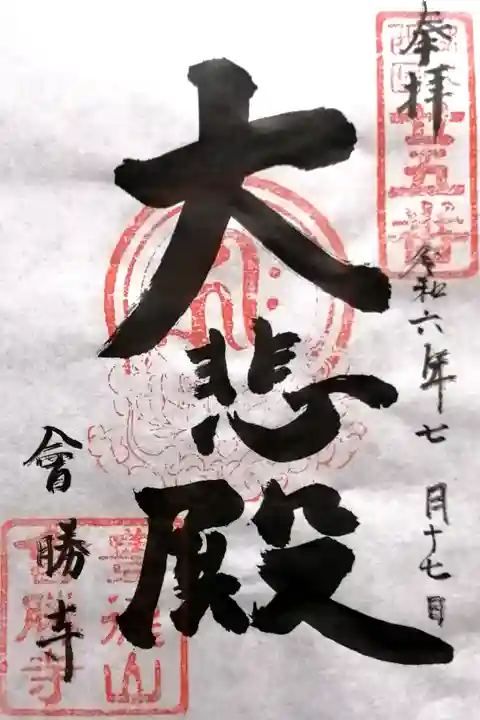 奉拝
廿五番
令和六年七月十七日
大悲殿
會勝寺